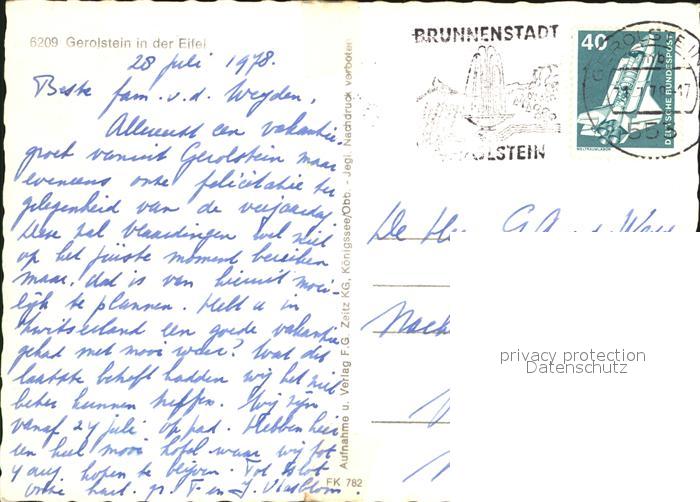 6209 Gerolstein in der Eifel
28 juli 1978.
Beste fam. v.d. Weyden,
Allereerst een vakantie-
groet vanuit Gerolstein maar
eveneens onze felicitatie ter
gelegenheid van de verjaardag
Deze zal Vlaardingen wel niet
op het juiste moment bereiken
maar dat is van hieruit moei-
lijk te plannen. Hebt u in
Zwitserland een goede vakantie
gehad met mooi weer? Wat dit
laatste betreft hadden wij het niet
beter kunnen treffen. Wij zijn
vanaf 24 juli op pad. Hebben hier
een heel mooi hotel waar wij tot
4 aug. hopen te blijven. Tot slot
onze hart. gr. T. en J. Vlasblom.
Aufnahme u. Verlag F.G. Zeitz KG, Königssee/Obb. - Jegl. Nachdruck verboten
FK 782
BRUNNENSTADT
GEROLSTEIN
40
DEUTSCHE BUNDESPOST
WELTRAUMLABOR
GEROLSTEIN
555
De H
privacy protection
Datenschutz